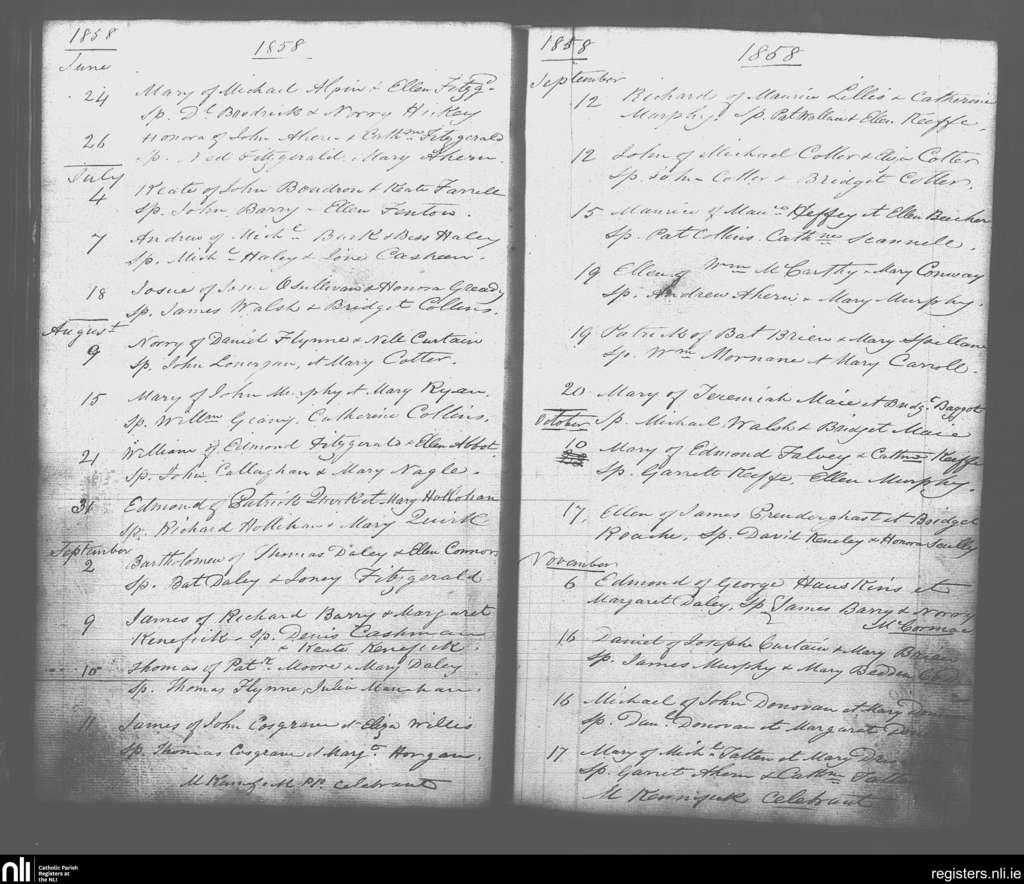 1858
1858
June
24 Mary of Michael Alpin & Ellen Fitzgd
Sp. Dl Bowdrick & Norry Hickey
26 Honora of John Ahern & Cathne Fitzgerald
Sp. Ned Fitzgerald. Mary Ahern.
July
4 Keate of John Boudron & Keate Farrell
Sp. John Barry & Ellen Fenton.
7 Andrew of Michl Buck & Bess Haley
Sp. Michl Haley & Cashen.
18 Josue of Josue OSullivan & Honora Gready
Sp. James Walsh & Bridget Collins.
August
9 Norry of Daniel Flynne & Nell Curtain
Sp. John Lonergan, et Mary Cotter.
15 Mary of John Murphy et Mary Ryan.
Sp. Willm Geany, Catherine Collins.
21 William of Edmond Fitzgerald & Ellen Abbot
Sp. John Callaghan & Mary Nagle.
31 Edmond of Patrick Quirk et Mary Hollihan
Sp. Richard Hollihan & Mary Quirk
September
2 Bartholomew of Thomas Daley & Ellen Connors
Sp. Bat Daley & Joney Fitzgerald
9 James of Richard Barry & Margaret
Keneficik - Sp. Denis Cashman
& Keate Kenefick.
10 Thomas of Patk Moore & Mary Daley
Sp. Thomas Flynne, Julia
11 James of John Cosgrave et Eliza Willis
Sp. Thomas Cosgrave et Margt Horgan.
M P.P. Celebrant
1858
1858
September
12 Richard of Maurice Lillis & Catherine
Murphy. Sp. Pat Wallace & Ellen Keeffe.
12 John of Michael Cotter & Eliza Cotter
Sp. John Cotter & Bridget Cotter.
15 Maurice of Maure Heffey et Ellen
Sp. Pat Collins. Cathne Scannell.
19 Ellen of Wm McCarthy & Mary Conway
Sp. Andrew Ahern & Mary Murphy.
19 Patrick of Bat Brien & Mary Spellane
Sp. Wm Mornane et Mary Carroll.
20 Mary of Jeremiah Maie et Bridgt Baggot
Sp. Michael Walsh & Bridget Maie
October
10 Mary of Edmond Falvey & Cathne Keeffe
Sp. Garrett Keeffe, Ellen Murphy.
17. Ellen of James Prenderghast et Bridget
Roache, Sp. David Keneley & Honora Scully
November
6 Edmond of George Hawskins et
Margaret Daley, Sp. James Barry & Norry
McCormac
16 Daniel of Joseph Curtain & Mary Brien
Sp. James Murphy & Mary
16 Michael of John Donovan et Mary
Sp. Danl Donovan et Margaret
17 Mary of Michl Fallen et Mary
Sp. Garret Ahern & Cathne
M Kennifick Celebrant
nli Catholic Parish
Registers at
the NLI
registers.nli.ie